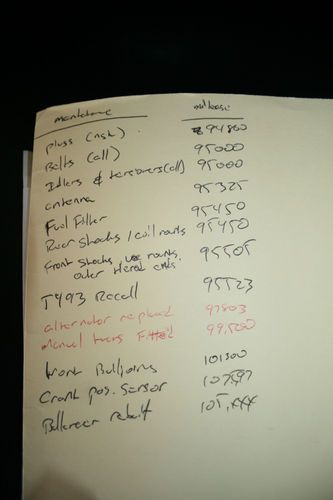 maintenance mileage
Plugs (ngk) 94800
Belts (all) 95000
Idlers & tensioners (all) 95000
antenna 95325
Fuel Filter 95450
Rear Shocks / coil mounts 95450
Front Shocks, mounts, outer tierod ends. 95505
J493 Recall 95523
alternator replaced 97803
Manual hubs 99,500
Front Balljoints 101300
Crank pos. Sensor
rebuilt